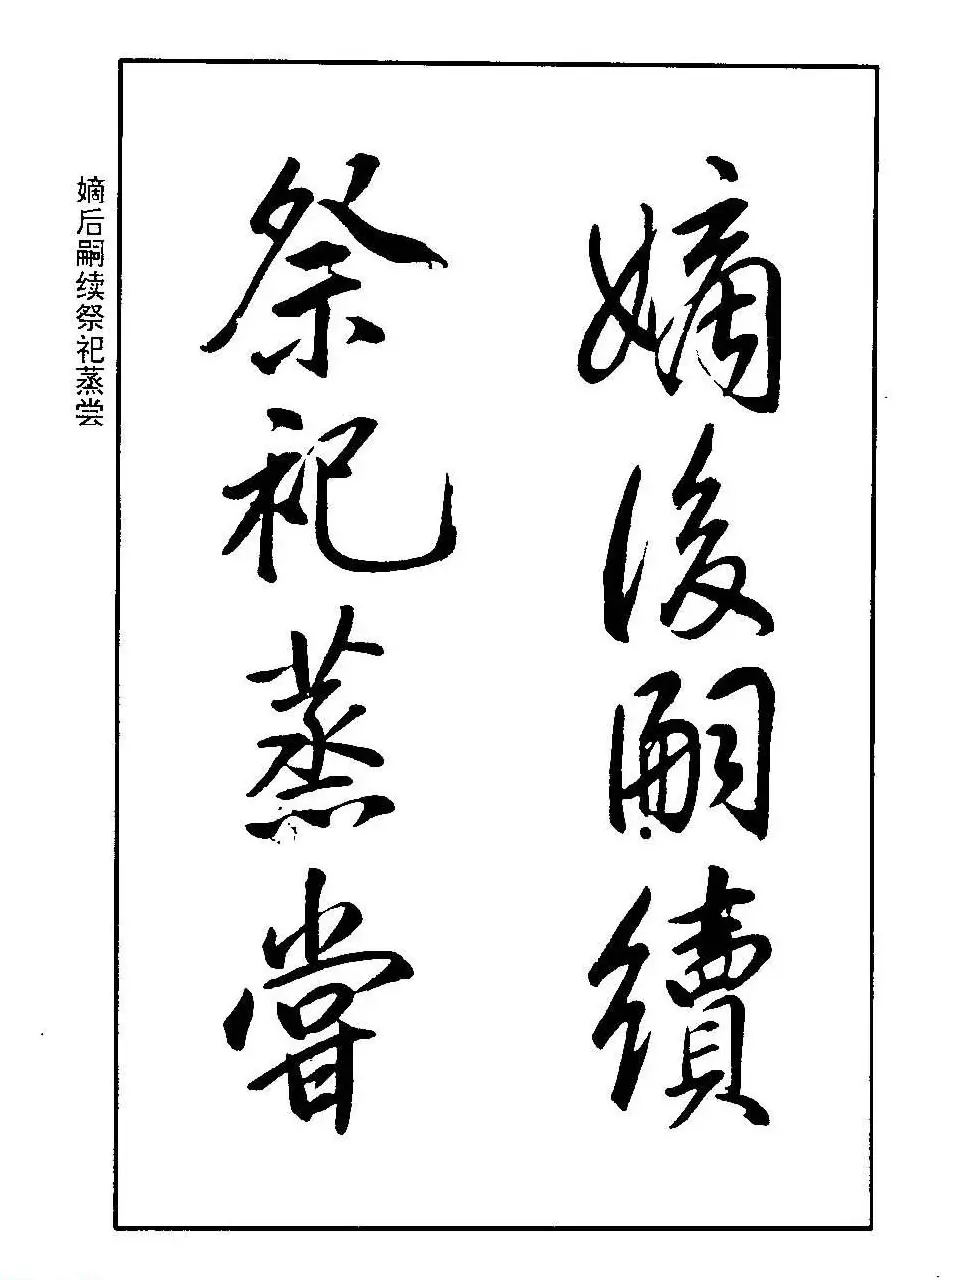 嫡後嗣續
祭祀蒸嘗
嫡后嗣续祭祀蒸尝